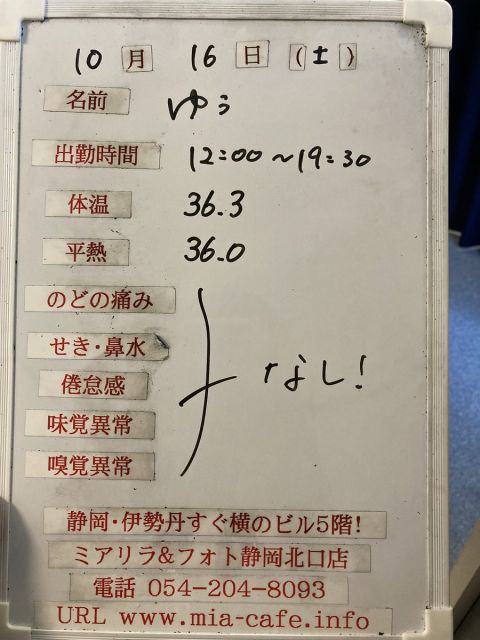 10月 16日 (土)
名前 ゆう
出勤時間 12:00~19:30
体温 36.3
平熱 36.0
のどの痛み
せき・鼻水
倦怠感 なし!
味覚異常
嗅覚異常
静岡・伊勢丹すぐ横のビル5階!
ミアリラ&フォト静岡北口店
電話 054-204-8093
URL www.mia-cafe.info